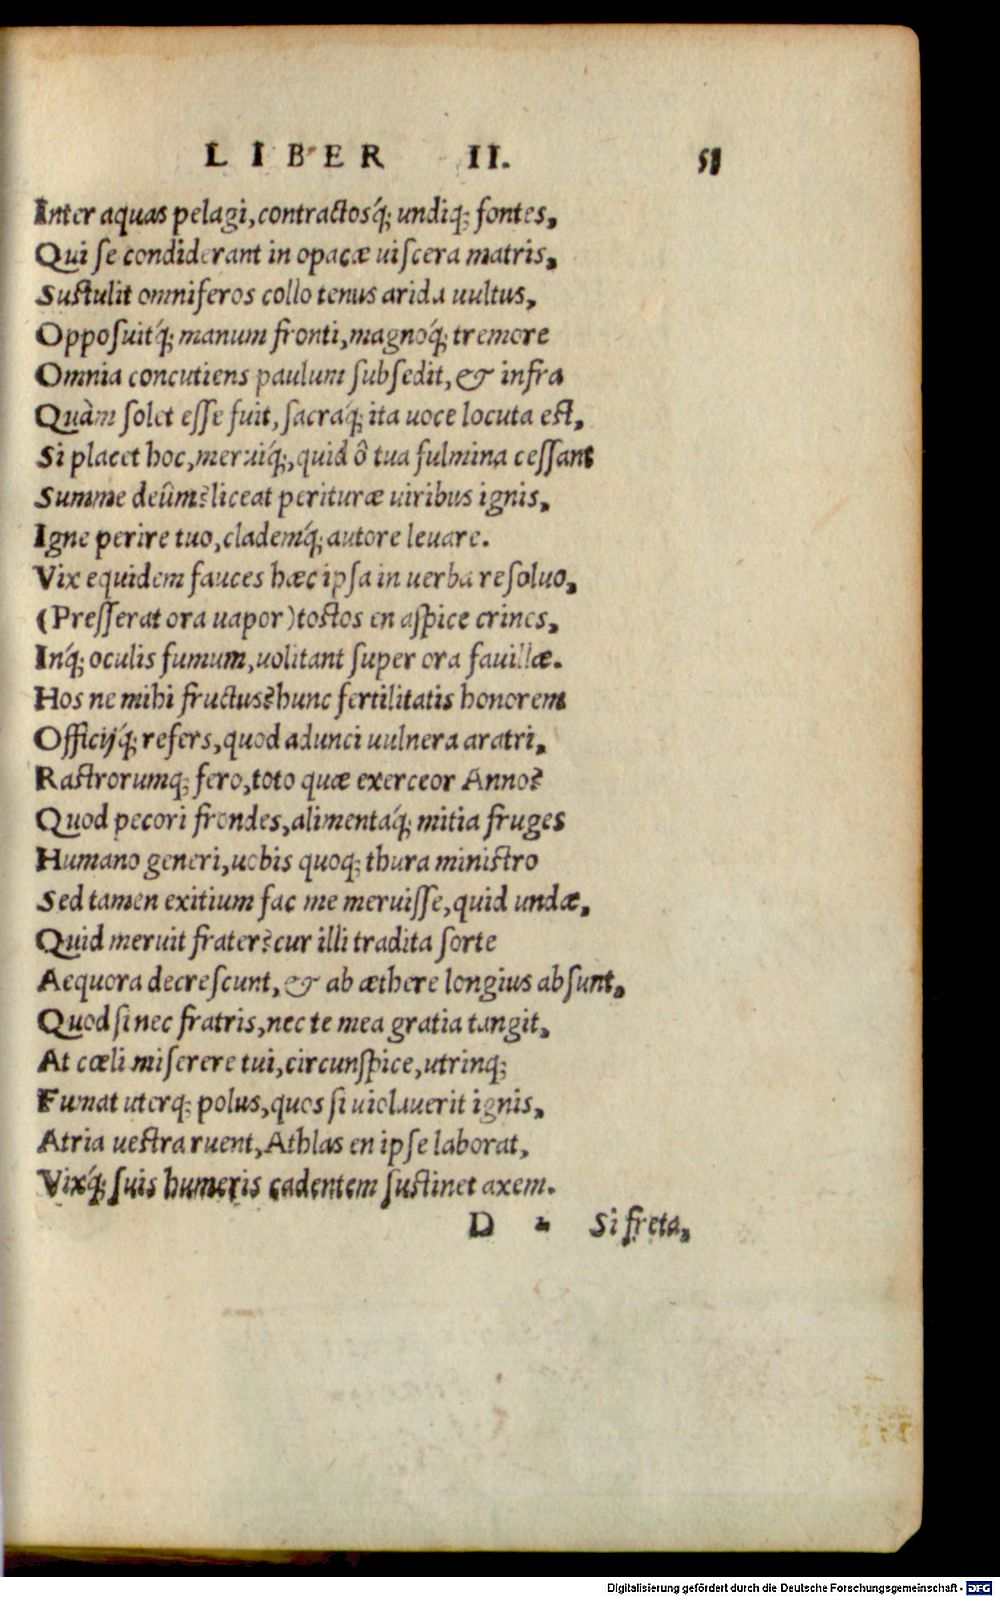 LIBER II. 51
Inter aquas pelagi, contractosq́; undiq; fontes,
Qui se condiderant in opacæ uiscera matris,
Sustulit omniferos collo tenus arida uultus,
Opposuitq́; manum fronti, magnoq́; tremore
Omnia concutiens paulum subsedit, & infra
Quàm solet esse fuit, sacraq́; ita uoce locuta est,
Si placet hoc, meruiq́;, quid ô tua fulmina cessant
Summe deûm? liceat perituræ uiribus ignis,
Igne perire tuo, clademq́; autore leuare.
Vix equidem fauces hæc ipsa in uerba resoluo,
(Presserat ora uapor) tostos en aspice crines,
Inq́; oculis fumum, uolitant super ora fauillæ.
Hos ne mihi fructus? hunc fertilitatis honorem
Officijq́; refers, quod adunci uulnera aratri,
Rastrorumq; fero, toto quæ exerceor Anno?
Quod pecori frondes, alimentaq́; mitia fruges
Humano generi, uobis quoq; thura ministro
Sed tamen exitium fac me meruisse, quid undæ,
Quid meruit frater? cur illi tradita sorte
Aequora decrescunt, & ab æthere longius absunt,
Quod si nec fratris, nec te mea gratia tangit,
At cœli miserere tui, circunspice, utrinq;
Fumat uterq; polus, quos si uiolauerit ignis,
Atria uestra ruent, Athlas en ipse laborat,
Vixq́; suis humeris cadentem sustinet axem.
D 2 Si freta,
Digitalisierung gefördert durch die Deutsche Forschungsgemeinschaft - DFG